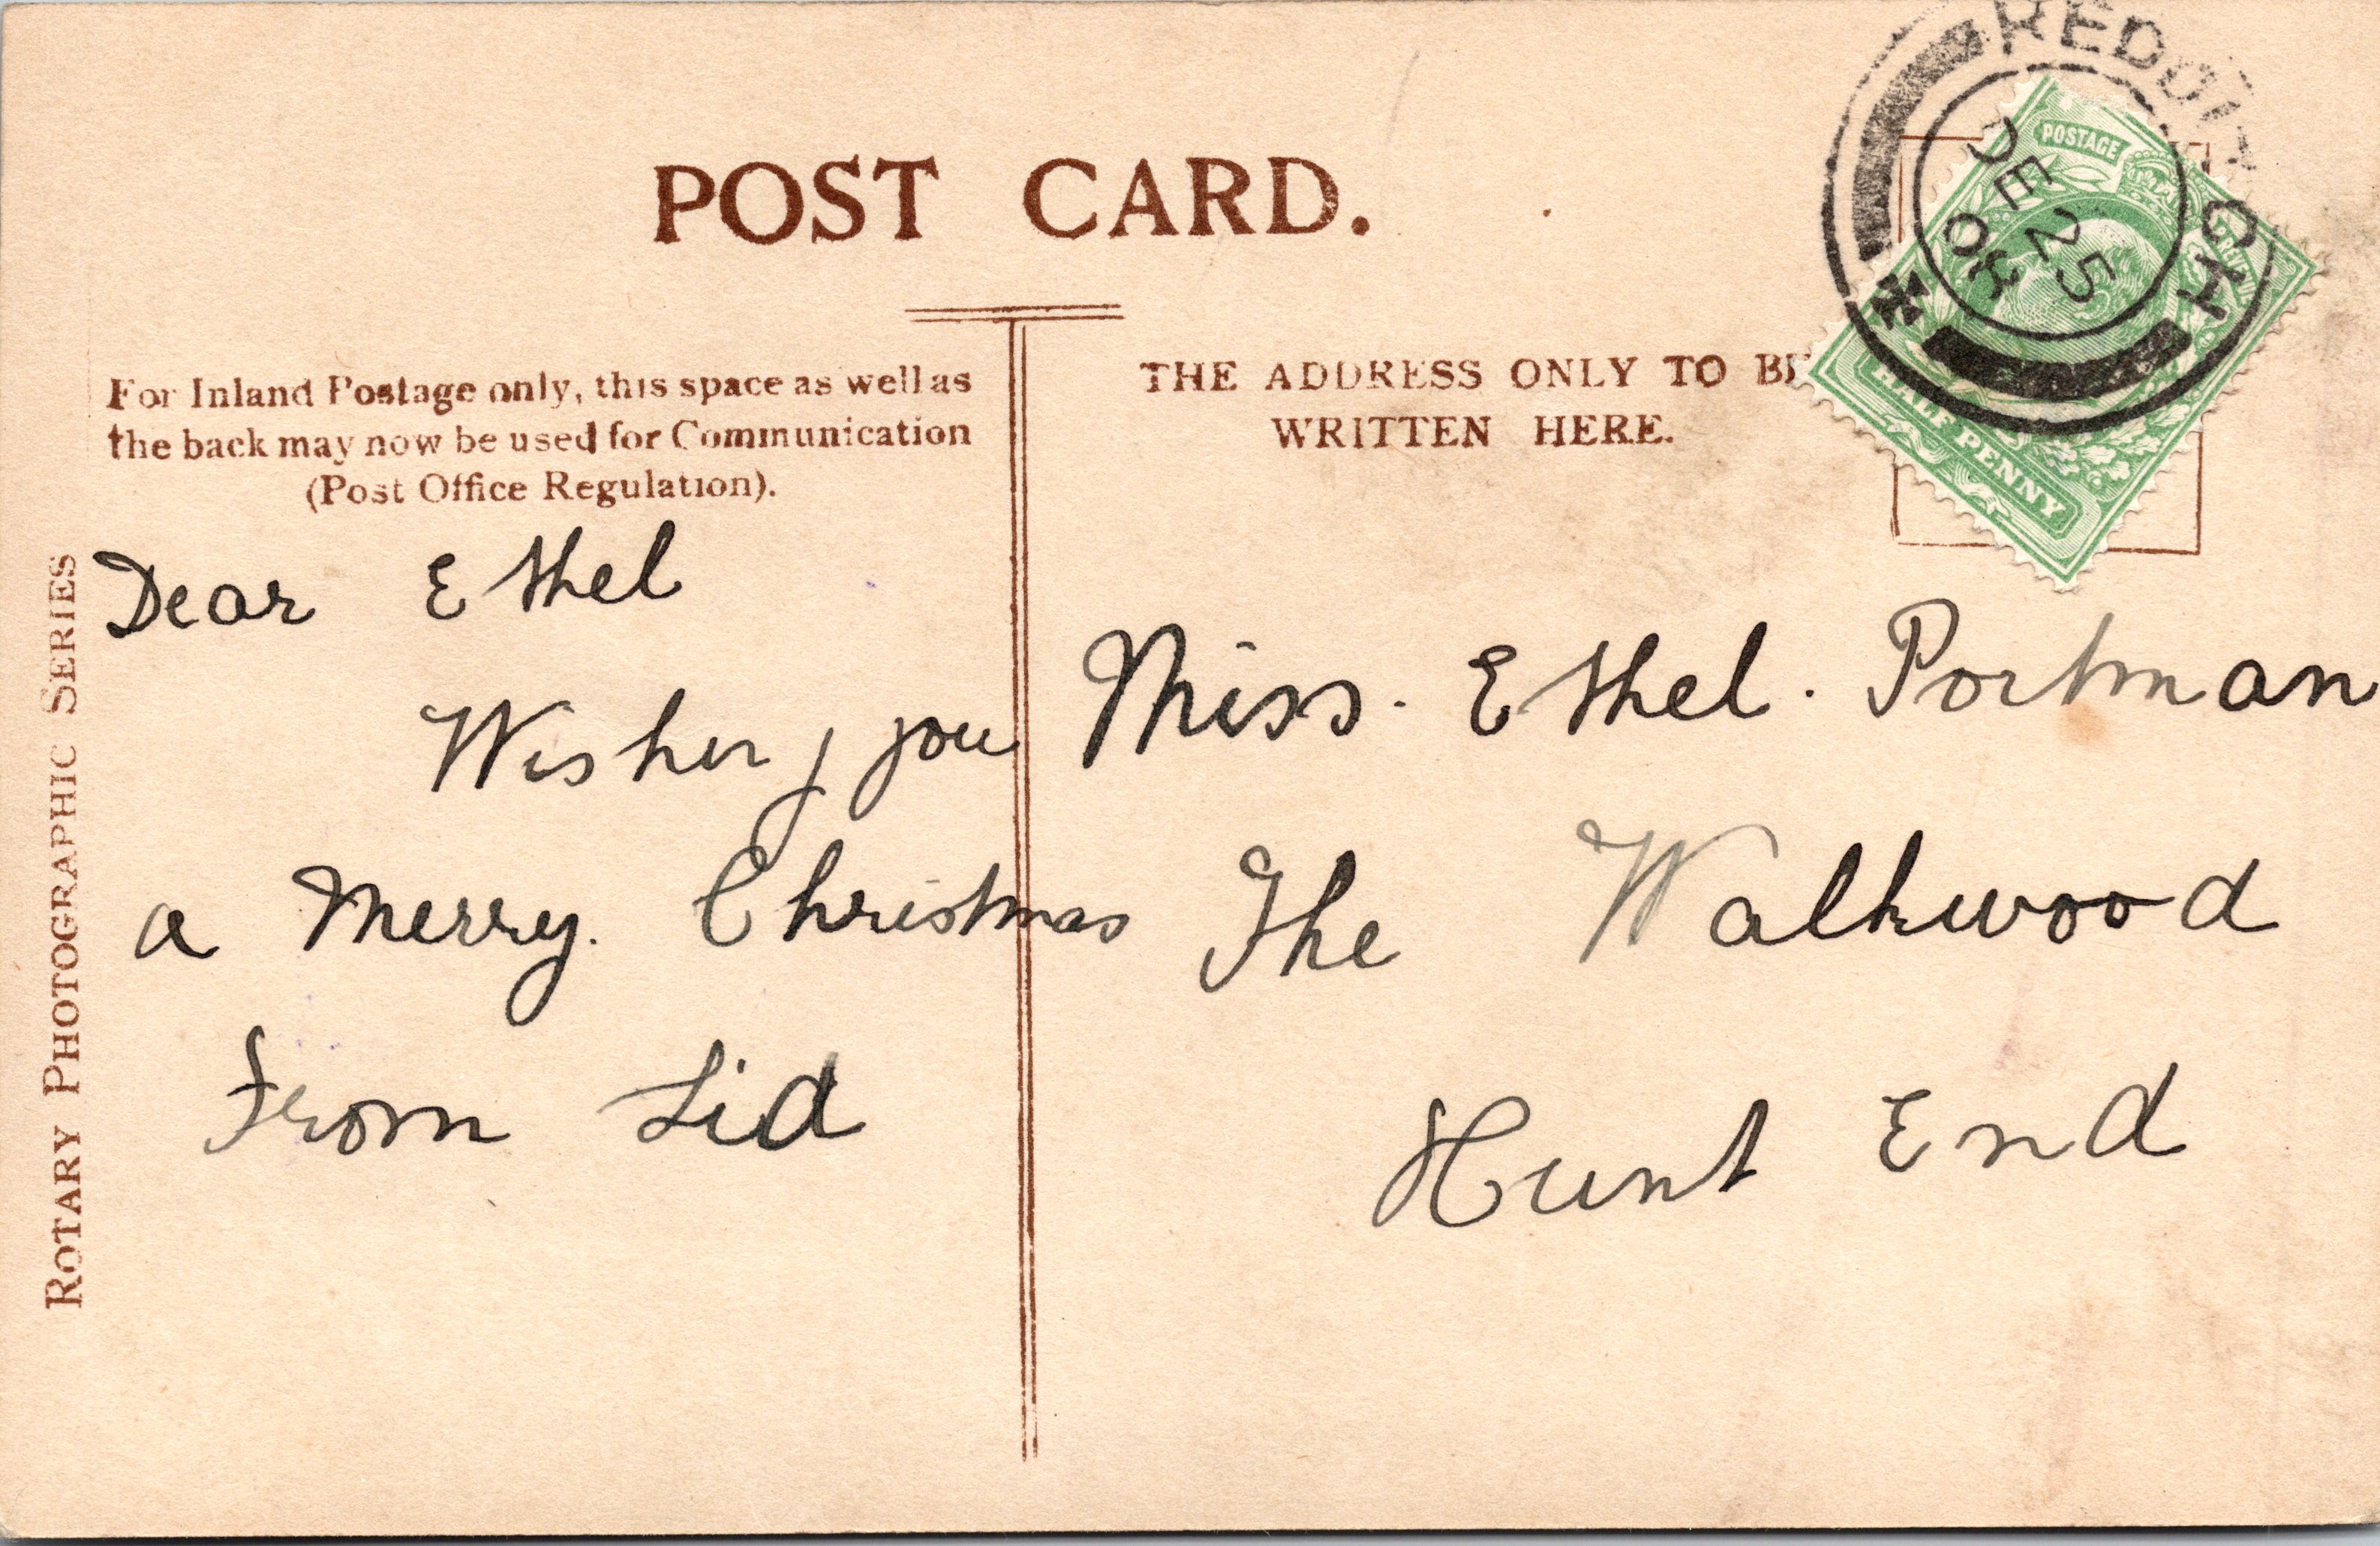 POST CARD.
For Inland Postage only, this space as well as
the back may now be used for Communication
(Post Office Regulation).
THE ADDRESS ONLY TO BE
WRITTEN HERE.
ROTARY PHOTOGRAPHIC SERIES
Dear Ethel
Wishing you
a Merry. Christmas
From Sid
Miss. Ethel. Portman
The Walkwood
Hunt End
REDDITCH
DE 25
08
POSTAGE
HALF PENNY